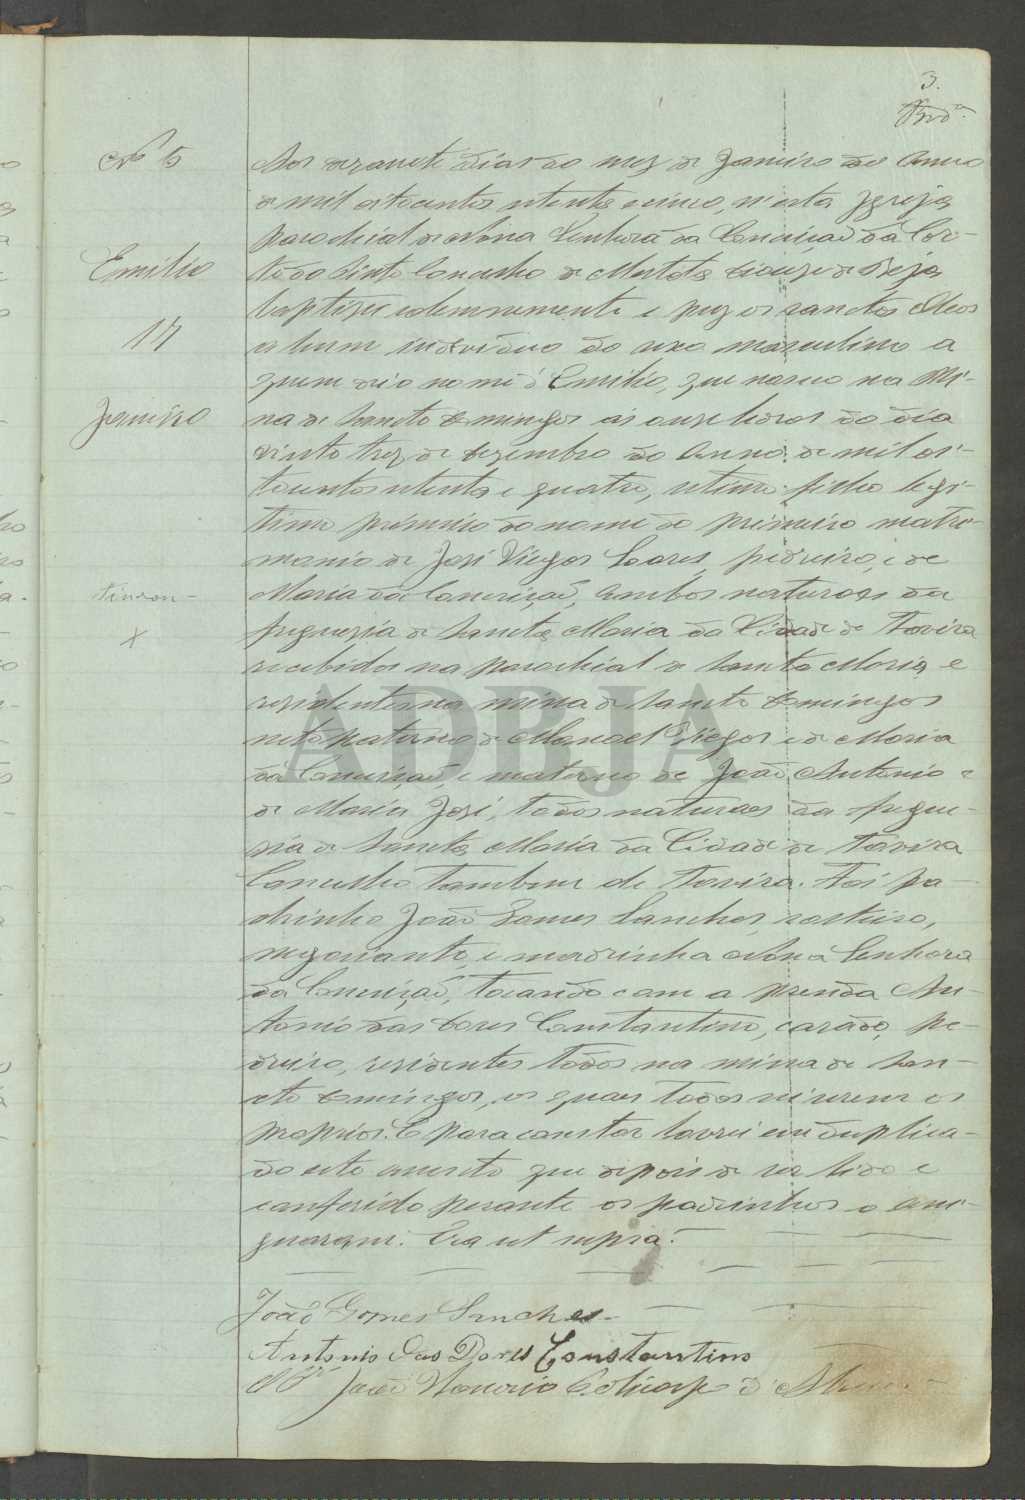 3.
Nº 5
Emilio
17
Janeiro
X
Aos dezasete dias do mez de Janeiro do Anno
de mil oitocentos oitenta e cinco, n'esta Igreja
parochial de Nossa Senhora da Conceição da Cor-
te do Pinto Concelho de Mertola Diocese de Beja
baptizei solemnemente e puz os sanctos Oleos
a hum individuo do sexo masculino a
quem dei o nome d'Emilio, que nasceu na Mi-
na de Sancto Domingos ás onze horas do dia
vinte trez de Dezembro do Anno de mil oi-
tocentos oitenta e quatro, filho legi-
timo primeiro do nome do primeiro matri-
monio de José Viegas Soares, pedreiro, e de
Maria da Conceição, ambos naturaes da
freguezia de Sancta Maria da Cidade de Tavira
recebidos na parochial de Sancta Maria, e
residentes na mina de Sancto Domingos
neto paterno de Manoel Viegas e de Maria
da Conceição, e materno de João Antonio e
de Maria José, todos naturaes da fregue-
sia de Sancta Maria da Cidade de Tavira
Concelho tambem de Tavira. Foi pa-
drinho João Gomes Sanches, solteiro,
negociante, e madrinha Nossa Senhora
da Conceição, tocando com a prenda An-
tonio das Dores Constantino, casado, pe-
dreiro, residentes todos na mina de San-
cto Domingos, os quaes todos serem os
proprios. E para constar lavrei em duplica-
do este assento que depois de ser lido e
conferido perante os padrinhos o assi-
gnaram. Era ut supra.
João Gomes Sanches
Antonio das Dores Constantino
João
ADBJA